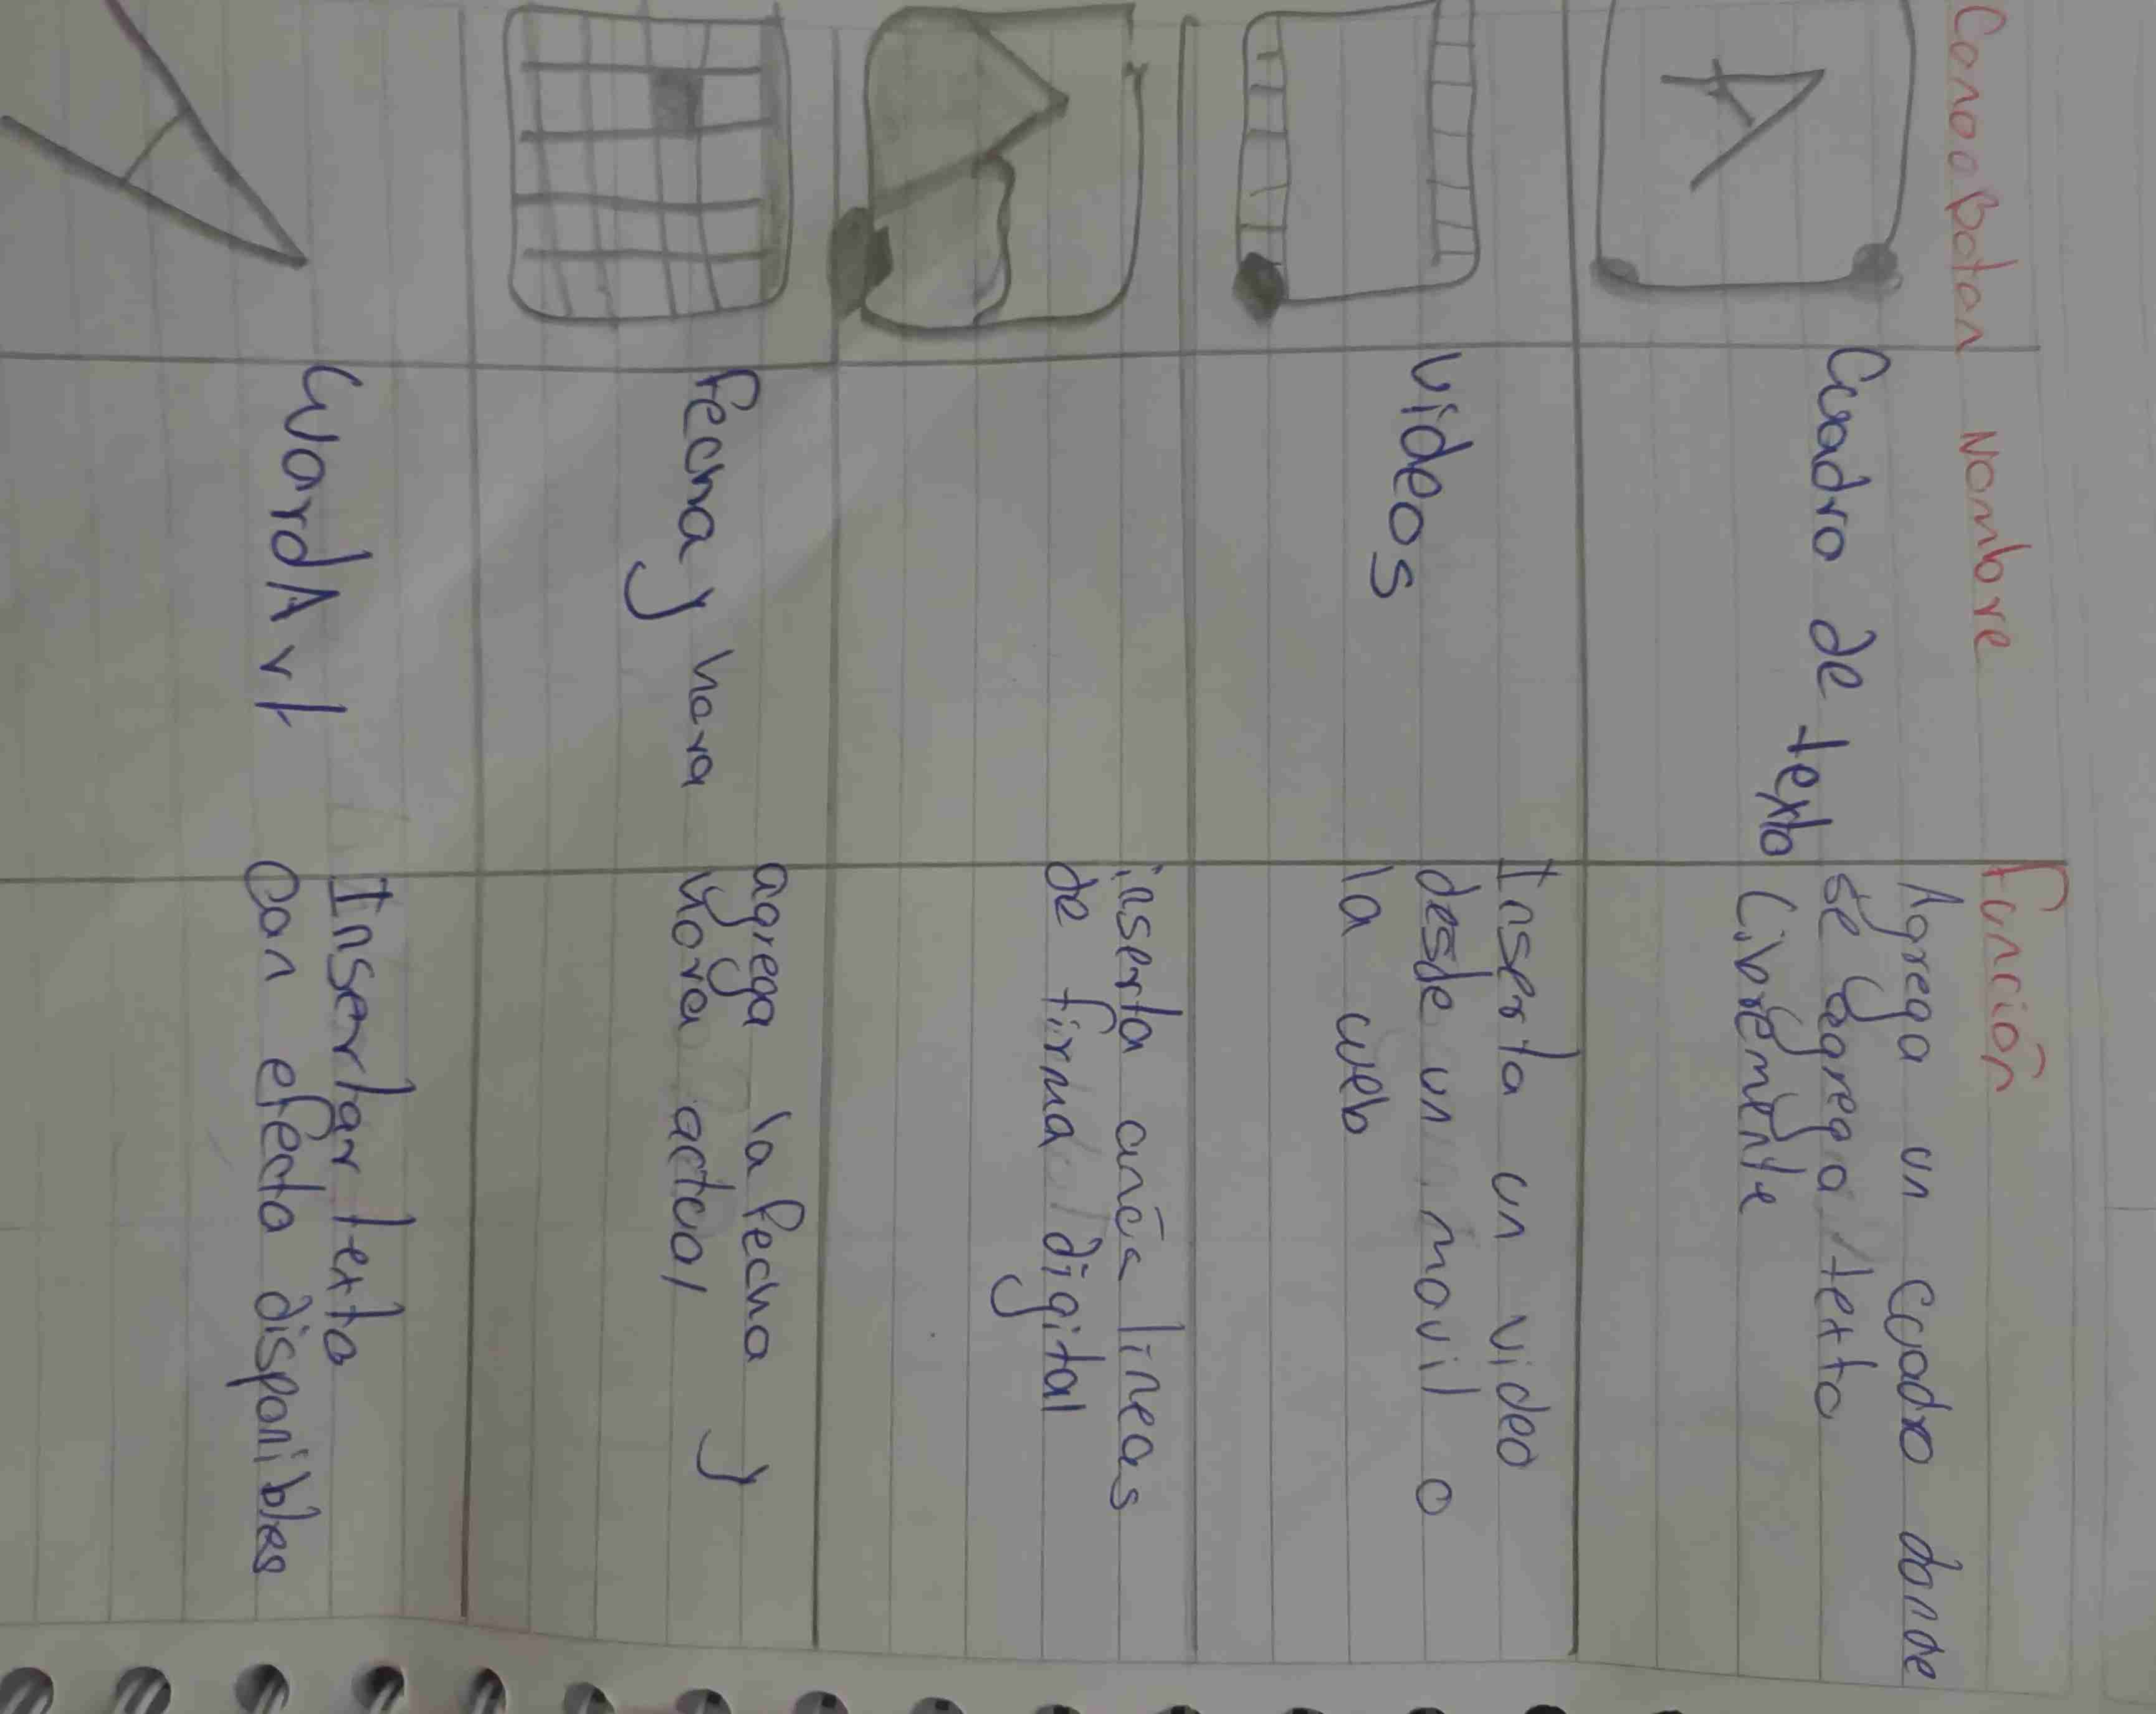 Cono o Botan Nombre Función
A
Cuadro de texto
Agrega un cuadro donde
se yagrega texto
Libremente
Videos
Inserta un video
desde un movil o
la web
inserta lineas
de firma digital
Fecha y hora
agrega la fecha y
hora actual
WordArt
Insertar texto
Con efecto disponibles